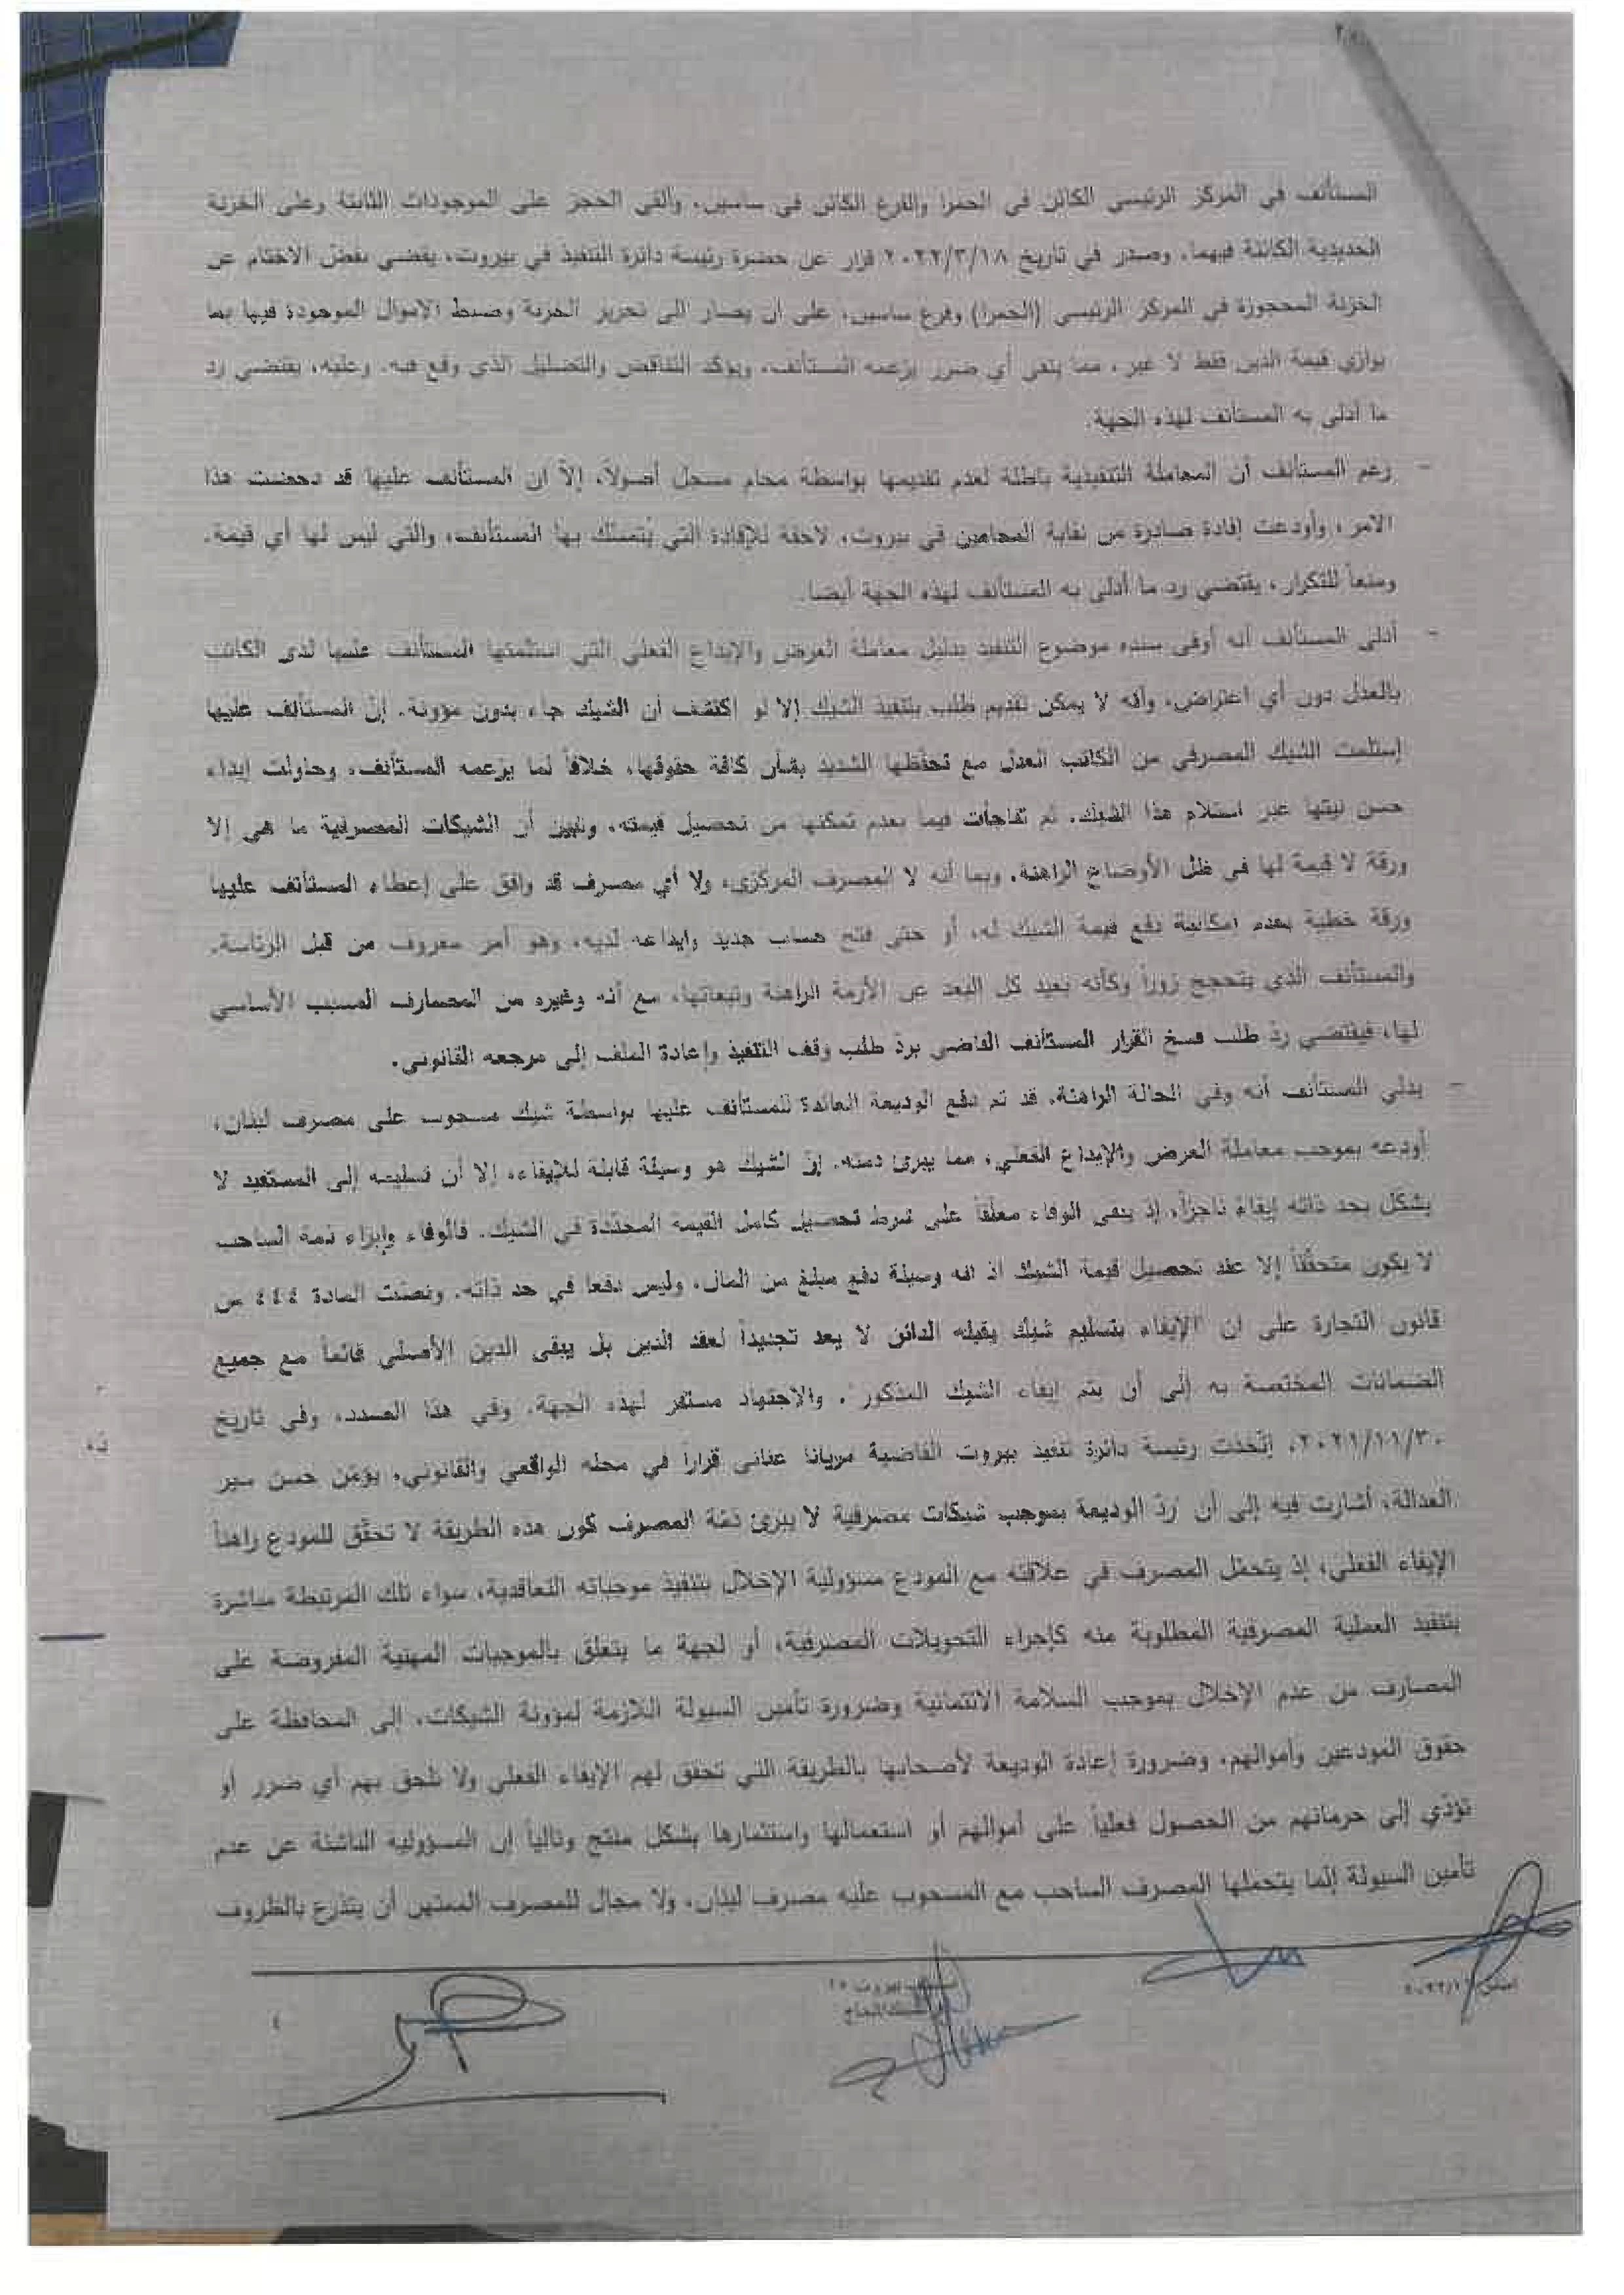 المستأنف في المركز الرئيسي الكائن في الحمرا والفرع الكائن في ساسين، وألقي الحجز على الموجودات الثابتة وعلى الخزنة
الحديدية الكائنة فيهما. وصدر في تاريخ ٢٠٢٢/٣/١٨ قرار عن حضرة رئيسة دائرة التنفيذ في بيروت، يقضي بفض الاختام عن
الخزنة المحجوزة في المركز الرئيسي (الحمرا) وفرع ساسين، على أن يصار الى تحرير الخزنة وضبط الاموال الموجودة فيها بما
يوازي قيمة الدين فقط لا غير، مما ينفي أي ضرر يزعمه المستأنف، ويؤكد التناقض والتضليل الذي وقع فيه. وعليه، يقتضي رد
ما أدلى به المستأنف لهذه الجهة.
- زعم المستأنف أن المعاملة التنفيذية باطلة لعدم تقديمها بواسطة محام مسجل أصولاً، إلاّ ان المستأنف عليها قد دحضت هذا
الامر، وأودعت إفادة صادرة من نقابة المحامين في بيروت، لاحقة للإفادة التي يتمسك بها المستأنف، والتي ليس لها أي قيمة.
ومنعاً للتكرار، يقتضي رد ما أدلى به المستأنف لهذه الجهة أيضا.
- أدلى المستأنف أنه أوفى بسنده موضوع التنفيذ بدليل معاملة العرض والإيداع الفعلي التي استلمتها المستأنف عليها لدى الكاتب
بالعدل دون أي اعتراض، وأنه لا يمكن تقديم طلب بتنفيذ الشيك إلا لو اكتشف أن الشيك جاء بدون مؤونة. إنّ المستأنف عليها
إستلمت الشيك المصرفي من الكاتب العدل مع تحفّظها الشديد بشأن كافة حقوقها، خلافاً لما يزعمه المستأنف، وحاولت إبداء
حسن نيتها عبر استلام هذا الشيك. ثم تفاجأت فيما بعدم تمكنها من تحصيل قيمته، وتبين أن الشيكات المصرفية ما هي إلا
ورقة لا قيمة لها في ظل الأوضاع الراهنة. وبما أنه لا المصرف المركزي، ولا أي مصرف قد وافق على إعطاء المستأنف عليها
ورقة خطية بعدم امكانية دفع قيمة الشيك له، أو حتى فتح حساب جديد وايداعه لديه، وهو أمر معروف من قبل الرئاسة.
والمستأنف الذي يتحجج زوراً وكأنه بعيد كل البعد عن الأزمة الراهنة وتبعاتها، مع أنه وغيره من المصارف المسبب الأساسي
لها، فيقتضي ردّ طلب فسخ القرار المستأنف القاضي بردّ طلب وقف التنفيذ وإعادة الملف إلى مرجعه القانوني.
- يدلي المستأنف أنه وفي الحالة الراهنة، قد تم دفع الوديعة العائدة للمستأنف عليها بواسطة شيك مسحوب على مصرف لبنان،
أودعه بموجب معاملة العرض والإيداع الفعلي، مما يبرئ ذمته. إن الشيك هو وسيلة قابلة للإيفاء، إلا أن تسليمه إلى المستفيد لا
يشكل بحد ذاته إيفاءً ناجزاً، إذ يبقى الوفاء معلّقاً على شرط تحصيل كامل القيمة المحدّدة في الشيك. فالوفاء وإبراء ذمة الساحب
لا يكون متحقّقاً إلا عند تحصيل قيمة الشيك اذ انه وسيلة دفع مبلغ من المال، وليس دفعا في حد ذاته. ونصّت المادة ٤٤٤ من
قانون التجارة على ان "الإيفاء بتسليم شيك يقبله الدائن لا يعد تجديداً لعقد الدين بل يبقى الدين الأصلي قائماً مع جميع
الضمانات المختصة به إلى أن يتم إيفاء الشيك المذكور". والاجتهاد مستقر لهذه الجهة. وفي هذا الصدد، وفي تاريخ
٢٠٢١/١١/٣٠، إتّخذت رئيسة دائرة تنفيذ بيروت القاضية مريانا عناني قراراً في محله الواقعي والقانوني، يؤمّن حسن سير
العدالة، أشارت فيه إلى أن "ردّ الوديعة بموجب شيكات مصرفية لا يبرئ ذمّة المصرف كون هذه الطريقة لا تحقّق للمودع راهناً
الإيفاء الفعلي، إذ يتحمّل المصرف في علاقته مع المودع مسؤولية الإخلال بتنفيذ موجباته التعاقدية، سواء تلك المرتبطة مباشرة
بتنفيذ العملية المصرفية المطلوبة منه كإجراء التحويلات المصرفية، أو لجهة ما يتعلق بالموجبات المهنية المفروضة على
المصارف من عدم الإخلال بموجب السلامة الائتمانية وضرورة تأمين السيولة اللازمة لمؤونة الشيكات، إلى المحافظة على
حقوق المودعين وأموالهم، وضرورة إعادة الوديعة لأصحابها بالطريقة التي تحقق لهم الإيفاء الفعلي ولا تلحق بهم أي ضرر أو
تؤدّي إلى حرمانهم من الحصول فعلياً على أموالهم أو استعمالها واستثمارها بشكل منتج وتالياً إن المسؤولية الناشئة عن عدم
تأمين السيولة إنّما يتحملها المصرف الساحب مع المسحوب عليه مصرف لبنان، ولا مجال للمصرف الممتهن أن يتذرع بالظروف
بيروت
٤